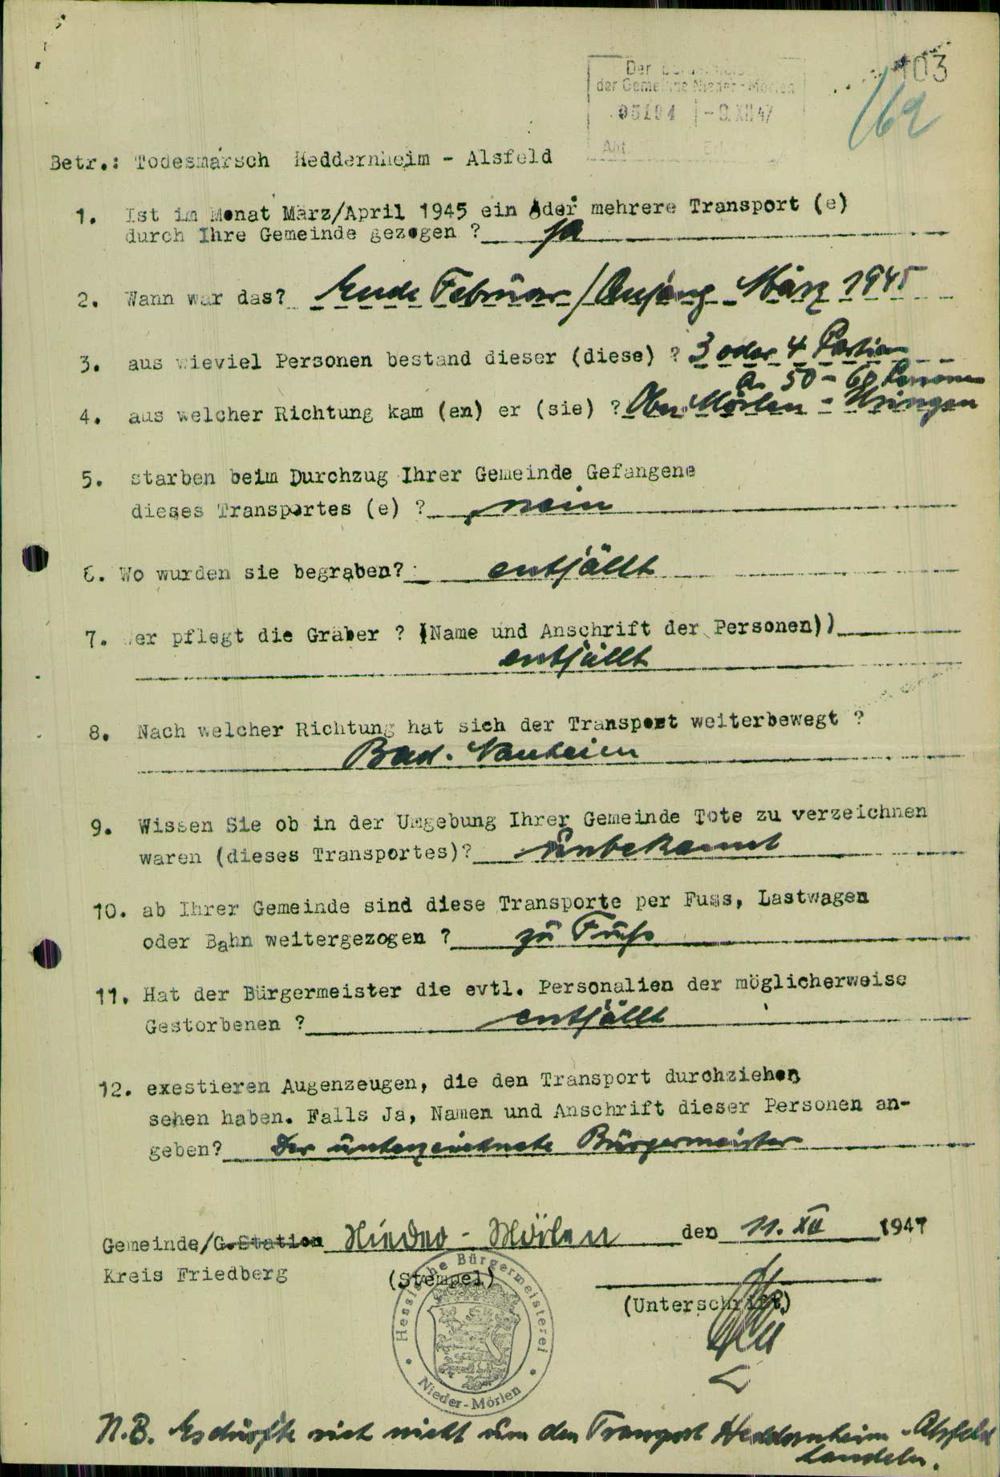 103
der Gemeinde Nieder-Mörlen
05194 -9.XII 47
Abt.
162
Betr.: Todesmarsch Heddernheim - Alsfeld
1. Ist im Monat März/April 1945 ein oder mehrere Transport (e)
durch Ihre Gemeinde gezogen ? ja
2. Wann war das? Ende Februar / Anfang März 1945
3. aus wieviel Personen bestand dieser (diese) ? 3 oder 4 Partien
a. 50 - 60 Personen
4. aus welcher Richtung kam (en) er (sie) ? Ober Mörlen - Usingen
5. starben beim Durchzug Ihrer Gemeinde Gefangene
dieses Transportes (e) ? nein
6. Wo wurden sie begraben? entfällt
7. Wer pflegt die Gräber ? (Name und Anschrift der Personen))
entfällt
8. Nach welcher Richtung hat sich der Transport weiterbewegt ?
Bad. Nauheim
9. Wissen Sie ob in der Umgebung Ihrer Gemeinde Tote zu verzeichnen
waren (dieses Transportes)? unbekannt
10. ab Ihrer Gemeinde sind diese Transporte per Fuss, Lastwagen
oder Bahn weitergezogen ? zu Fuß
11. Hat der Bürgermeister die evtl. Personalien der möglicherweise
Gestorbenen ? entfällt
12. exestieren Augenzeugen, die den Transport durchziehen
sehen haben. Falls Ja, Namen und Anschrift dieser Personen an-
geben? Der unterzeichnete Bürgermeister
Gemeinde/G.Station Nieder - Mörlen den 11. XII 1947
Kreis Friedberg (Stempel)
(Unterschrift)
Hessische Bürgermeisterei
Nieder-Mörlen
N.B. Es dürfte sich nicht um den Transport Heddernheim - Alsfeld
handeln.